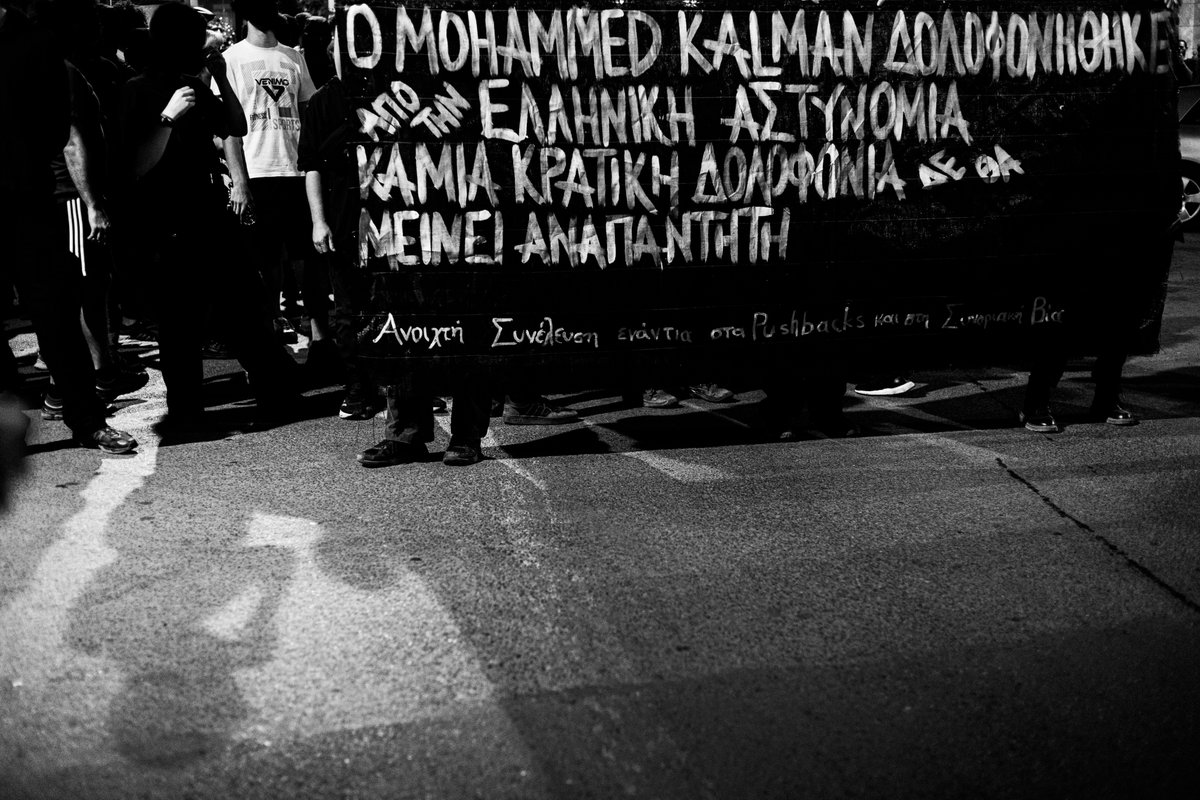 Ο MOHAMMED KALMAN ΔΟΛΟΦΟΝΗΘΗΚΕ
ΑΠΟ ΤΗΝ ΕΛΛΗΝΙΚΗ ΑΣΤΥΝΟΜΙΑ
ΚΑΜΙΑ ΚΡΑΤΙΚΗ ΔΟΛΟΦΟΝΙΑ ΔΕ ΘΑ
ΜΕΙΝΕΙ ΑΝΑΠΑΝΤΗΤΗ
Ανοιχτή Συνέλευση ενάντια στα Pushbacks και στη Συνοριακή Βία
VENIMO
SPORTS